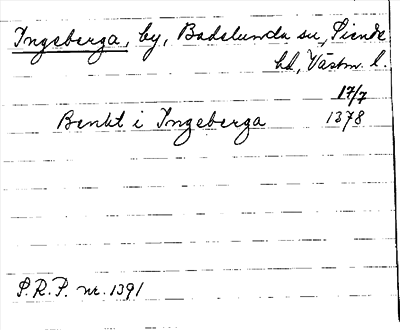 Ingeberga, by, Badelunda sn, Siende
hd, Västm. l.
17/7
Benkt i Ingeberga 1378
P.R.P. nr. 1391